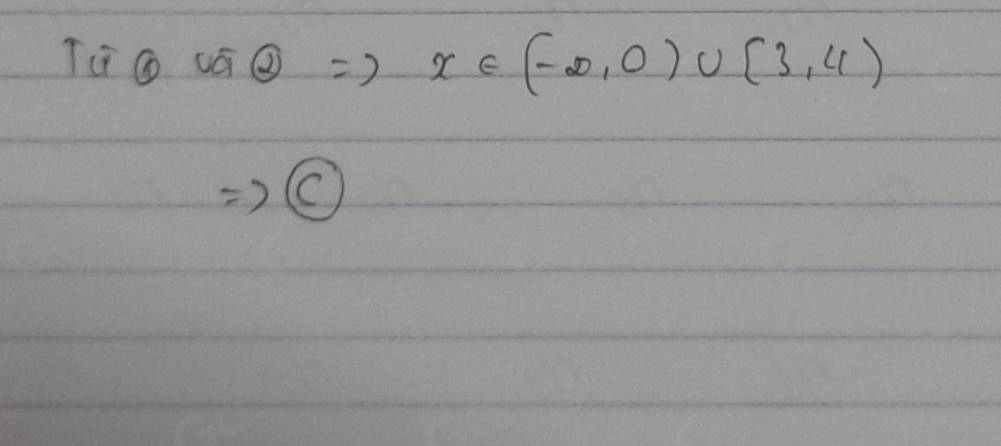 Từ ① và ② => x ∈ (-∞,0) ∪ [3,4)
=> Ⓒ